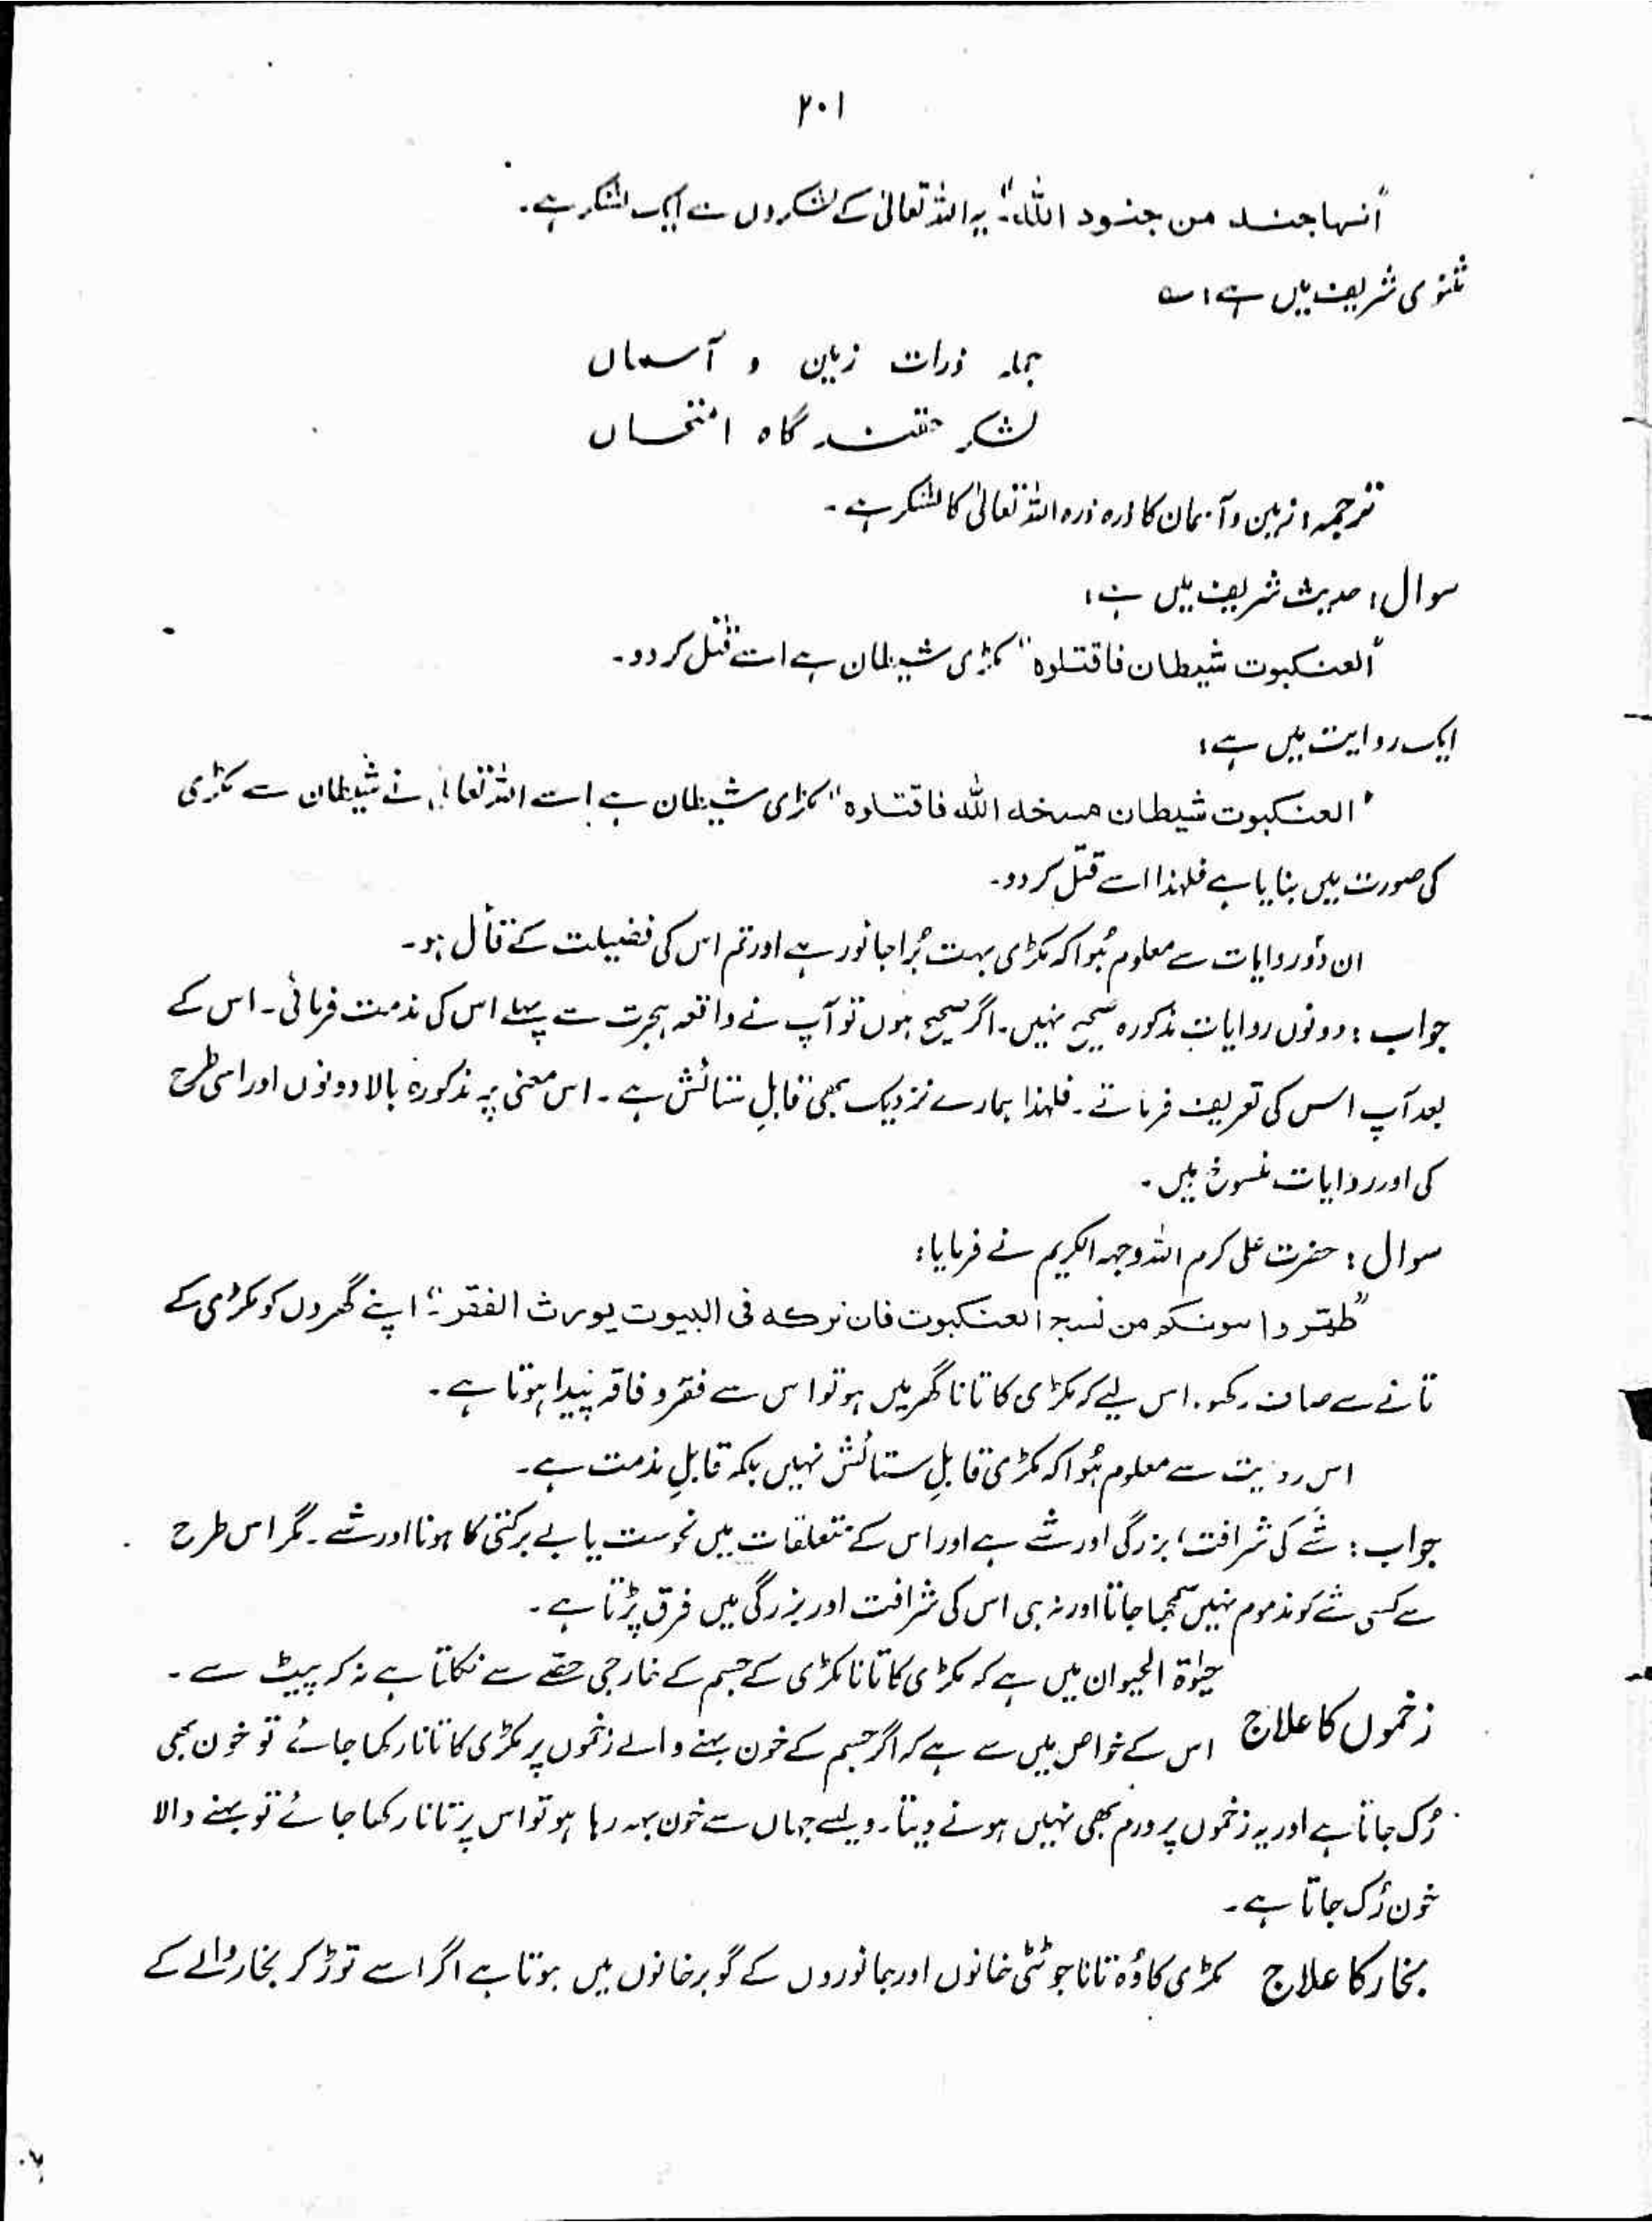 ۲۰۱
"انہا جند من جنود اللہ" یہ اللہ تعالیٰ کے لشکروں سے ایک لشکر ہے۔
مثنوی شریف میں ہے ؎
جملہ ذرات زمین و آسماں
لشکر حقند گاہ امتحاں
ترجمہ: زمین و آسمان کا ذرہ ذرہ اللہ تعالیٰ کا لشکر ہے۔
سوال: حدیث شریف میں ہے:
"العنکبوت شیطان فاقتلوہ" مکڑی شیطان ہے اسے قتل کر دو۔
ایک روایت میں ہے:
"العنکبوت شیطان مسخہ اللہ فاقتلوہ" مکڑی شیطان ہے اسے اللہ تعالیٰ نے شیطان سے مکڑی
کی صورت میں بنایا ہے فلہذا اسے قتل کر دو۔
ان دو روایات سے معلوم ہُوا کہ مکڑی بہت بُرا جانور ہے اور تم اس کی فضیلت کے قائل ہو۔
جواب: دونوں روایات مذکورہ صحیح نہیں۔ اگر صحیح ہوں تو آپ نے واقعہ ہجرت سے پہلے اس کی مذمت فرمائی۔ اس کے
بعد آپ اس کی تعریف فرماتے۔ فلہذا ہمارے نزدیک بھی قابلِ ستائش ہے۔ اس معنی پر مذکورہ بالا دونوں اور اسی طرح
کی اور روایات منسوخ ہیں۔
سوال: حضرت علی کرم اللہ وجہہ الکریم نے فرمایا:
"طہروا بیوتکم من نسج العنکبوت فان ترکہ فی البیوت یورث الفقر" اپنے گھروں کو مکڑی کے
تانے سے صاف رکھو۔ اس لیے کہ مکڑی کا تانا گھر میں ہو تو اس سے فقر و فاقہ پیدا ہوتا ہے۔
اس روایت سے معلوم ہُوا کہ مکڑی قابلِ ستائش نہیں بلکہ قابلِ مذمت ہے۔
جواب: شے کی شرافت، بزرگی اور شے ہے اور اس کے متعلقات میں نحوست یا بے برکتی کا ہونا اور شے۔ مگر اس طرح
سے کسی شے کو مذموم نہیں سمجھا جاتا اور نہ ہی اس کی شرافت اور بزرگی میں فرق پڑتا ہے۔
حیٰوۃ الحیوان میں ہے کہ مکڑی کا تانا مکڑی کے جسم کے خارجی حصّے سے نکلتا ہے نہ کہ پیٹ سے۔
زخموں کا علاج اس کے خواص میں سے ہے کہ اگر جسم کے خون بہنے والے زخموں پر مکڑی کا تانا رکھا جائے تو خون بھی
رُک جاتا ہے اور یہ زخموں پر ورم بھی نہیں ہونے دیتا۔ ویسے جہاں سے خون بہہ رہا ہو تو اس پر تانا رکھا جائے تو بہنے والا
خون رُک جاتا ہے۔
بخار کا علاج مکڑی کا وُہ تانا جو ٹٹی خانوں اور جانوروں کے گوبر خانوں میں ہوتا ہے اگر اسے توڑ کر بخار والے کے